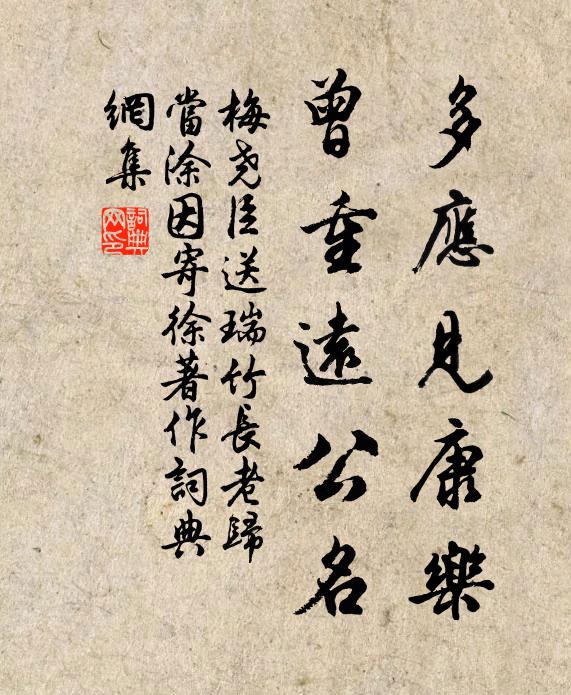 多應見康樂
曾重遠公名
梅尧臣送瑞竹長老歸
當涂因寄徐著作詞典
網集
詞典
网印